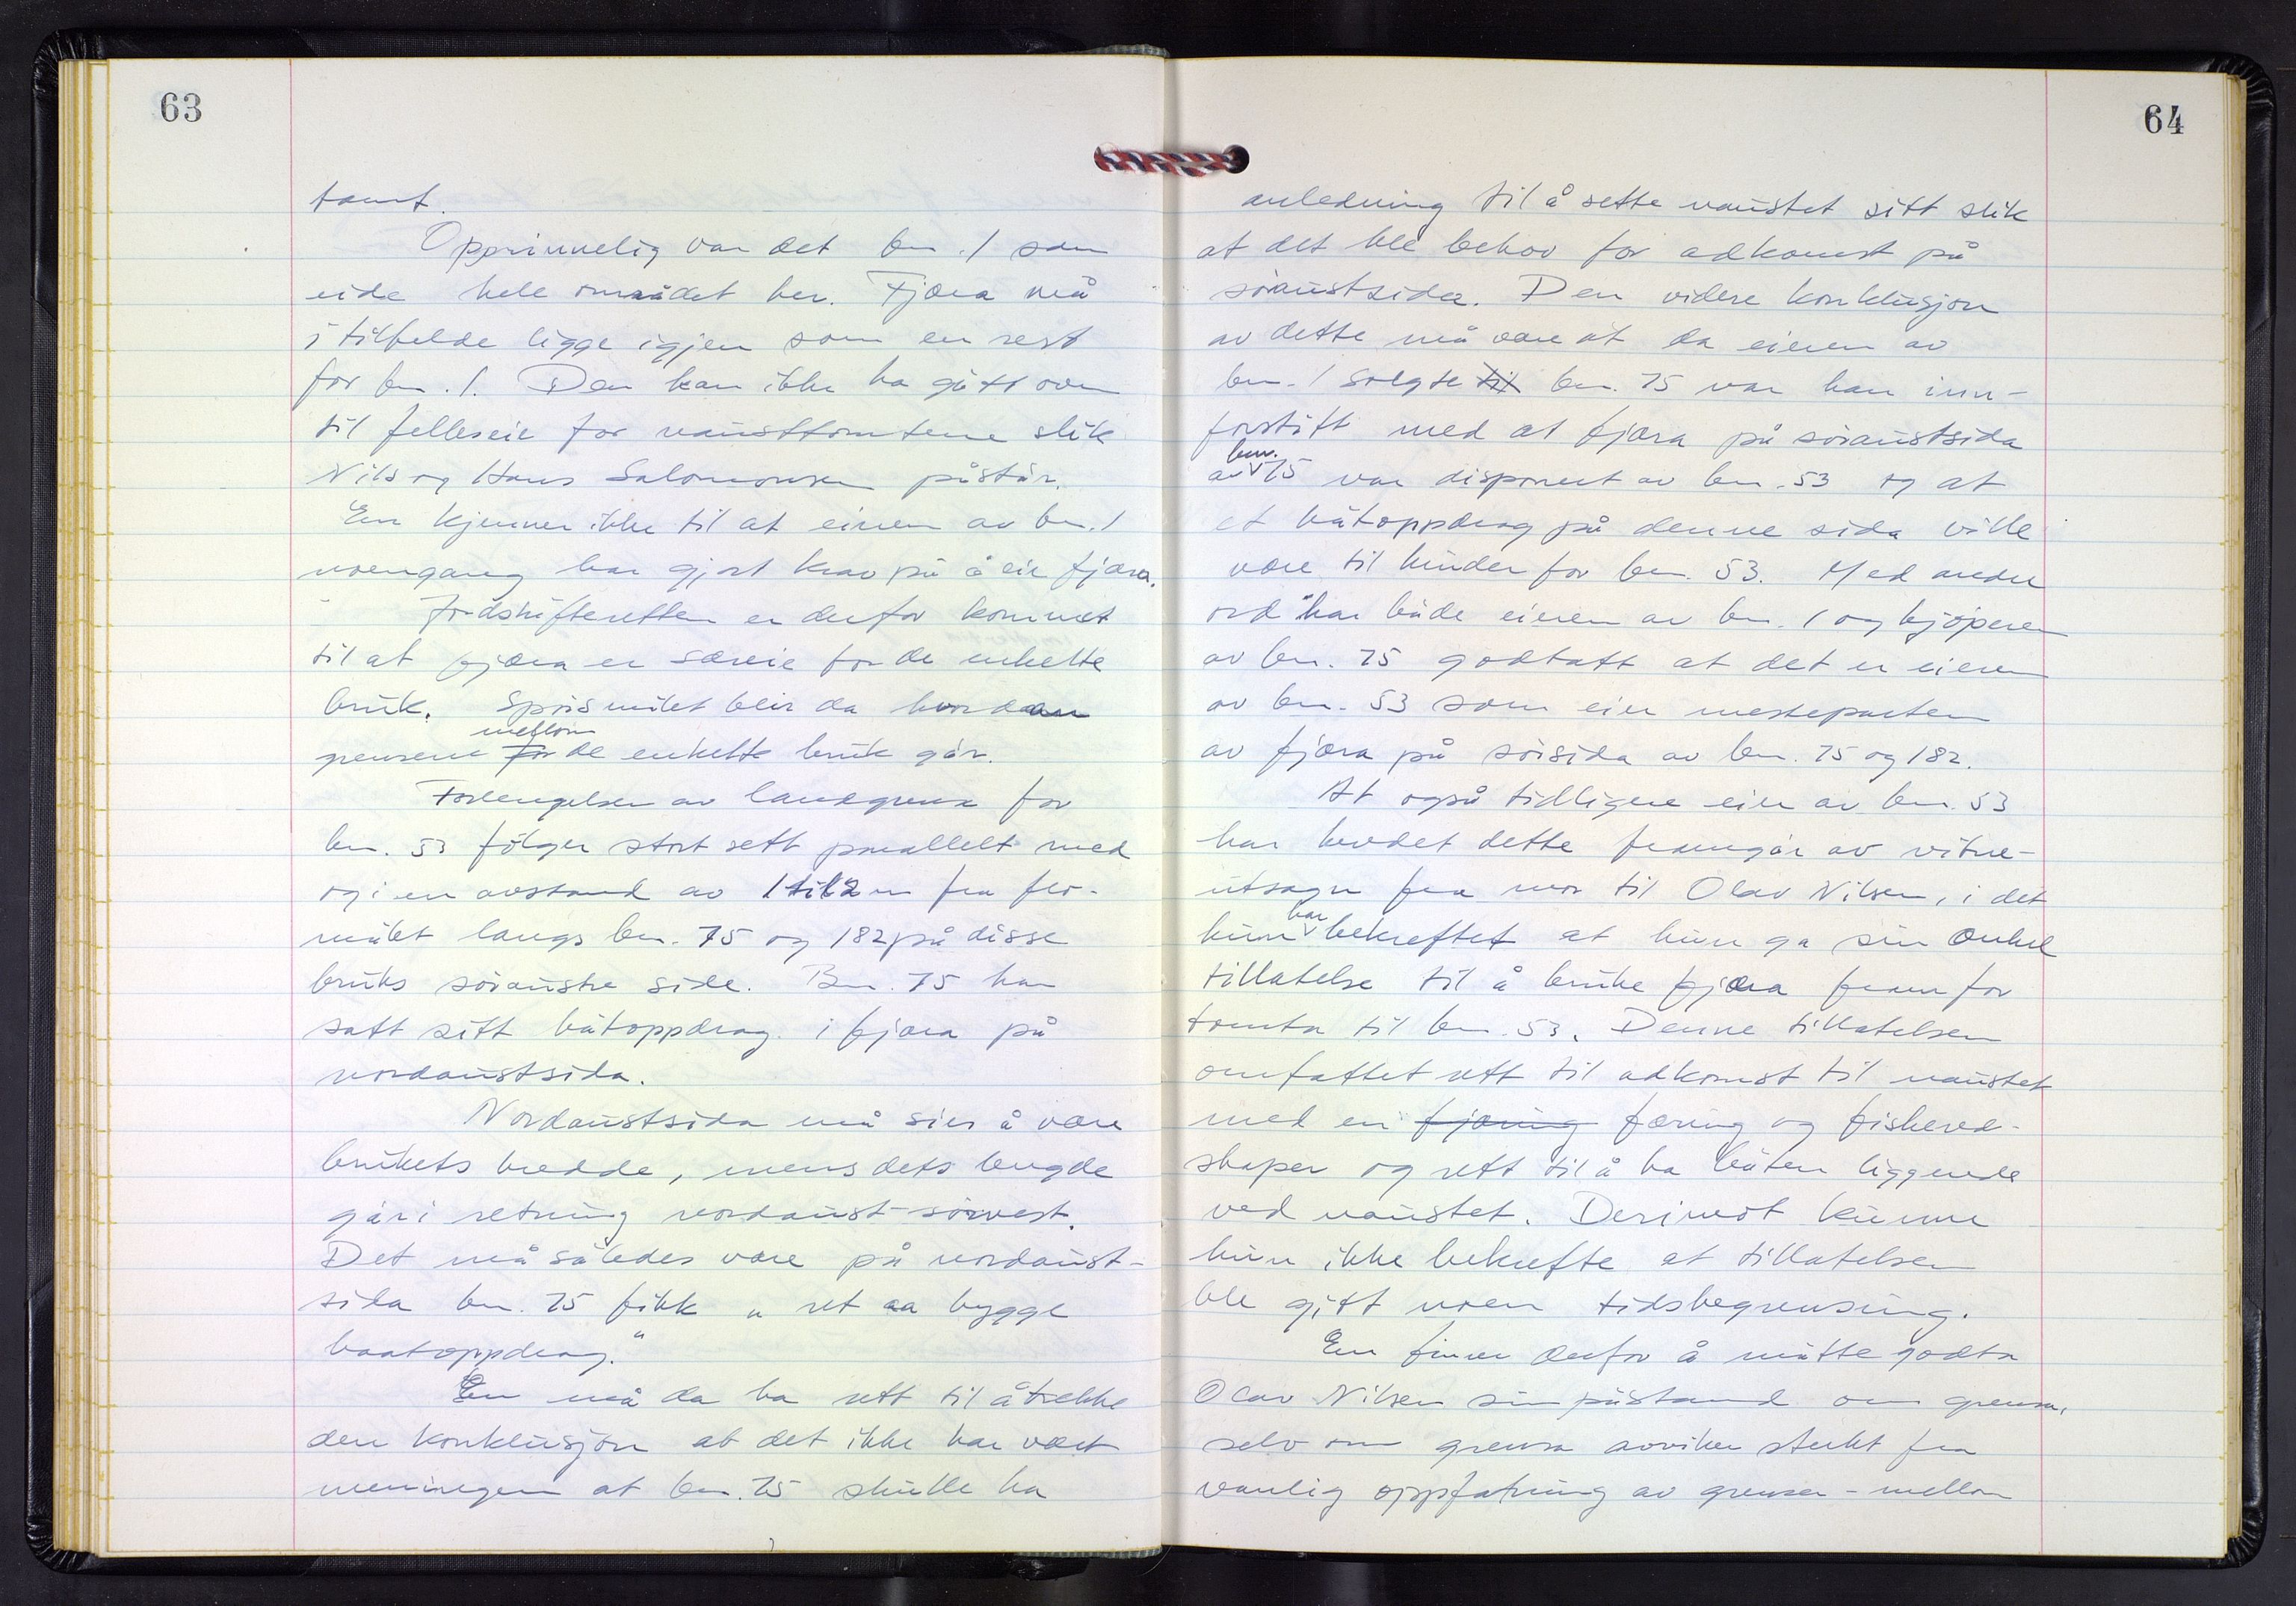 63
tomt.
Opprinnelig var det bn. 1 som
eide hele området her. Fjæra må
i tilfelde ligge igjen som en rest
for bn. 1. Den kan ikke ha gått over
til felleseie for nausttomtene slik
Nils og Hans Salomonsen påstår.
En kjenner ikke til at eieren av bn. 1
noengang har gjort krav på å eie fjæra.
Jordskifteretten er derfor kommet
til at fjæra er særeie for de enkelte
bruk. Spörsmålet blir da hvordan
grensene for mellom de enkelte bruk går.
Forlengelsen av landgrensa for
bn. 53 fölger stort sett parallelt med
og i en avstand av 1 til 2 m fra flo-
målet langs bn. 75 og 182 på disse
bruks söraustre side. Bn. 75 har
satt sitt båtoppdrag i fjæra på
nordaustsida.
Nordaustsida må sies å være
brukets bredde, mens dets lengde
går i retning nordaust-sörvest.
Det må således være på nordaust-
sida bn. 75 fikk „ ret aa bygge
baatoppdrag."
En må da ha rett til å trekke
den konklusjon at det ikke har vært
meningen at bn. 75 skulle ha
64
anledning til å sette naustet sitt slik
at det ble behov for adkomst på
söraustsida. Den videre konklusjon
av dette må være at da eieren av
bn. 1 solgte til bn. 75 var han inn-
forstått med at fjæra på söraustsida
av bnr. 75 var disponert av bn. 53 og at
et båtoppdrag på denne sida ville
være til hinder for bn. 53. Med andre
ord har både eieren av bn. 1 og kjöperen
av bn. 75 godtatt at det er eieren
av bn. 53 som eier mesteparten
av fjæra på sörsida av bn. 75 og 182.
At også tidligere eier av bn. 53
har hevdet dette framgår av vitne-
utsagn fra mor til Olav Nilsen, i det
hun har bekreftet at hun ga sin onkel
tillatelse til å bruke fjæra framfor
tomta til bn. 53. Denne tillatelsen
omfattet rett til adkomst til naustet
med en fjæring færing og fiskered-
skaper og rett til å ha båten liggende
ved naustet. Derimot kunne
hun ikke bekrefte at tillatelsen
ble gitt noen tidsbegrensing.
En finner derfor å måtte godta
Olav Nilsen sin påstand om grensa,
selv om grensa avviker sterkt fra
vanlig oppfatning av grenser - mellom